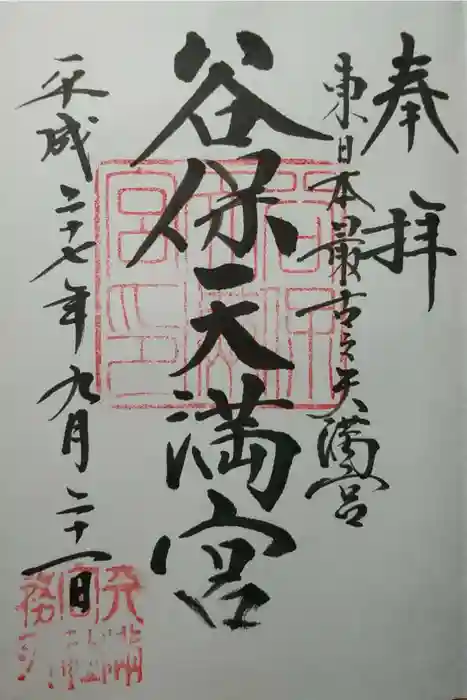 奉拝
東日本最古之天満宮
谷保天満宮
平成二十七年九月二十一日